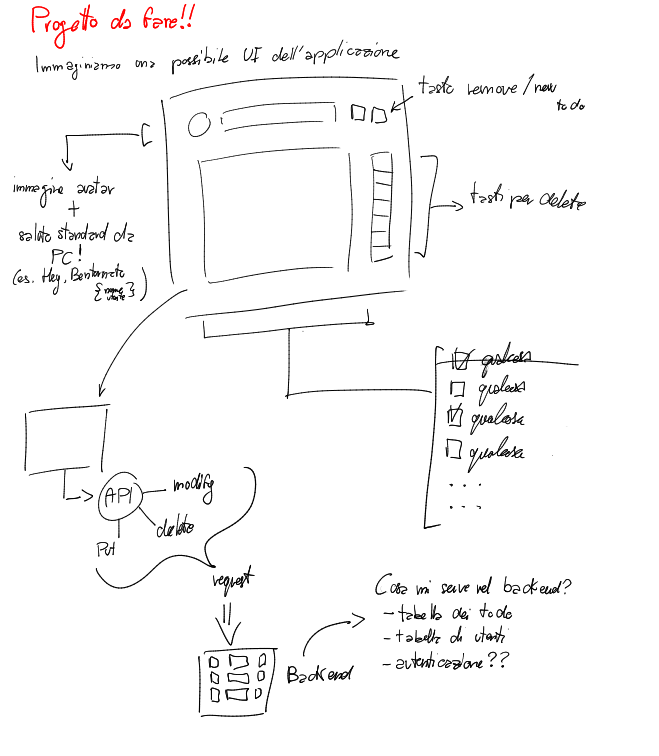 Progetto da fare!!
Immaginiamo una possibile UI dell'applicazione
tasto remove/new
to do
immagine avatar
+
saluto standard da
PC!
(es. Hey, Bentornato
{nome
utente})
tasti per delete
qualcosa
qualcosa
qualcosa
qualcosa
...
...
API
modify
delete
Put
request
Backend
Cosa mi serve nel backend?
- tabella dei todo
- tabella di utenti
- autenticazione??